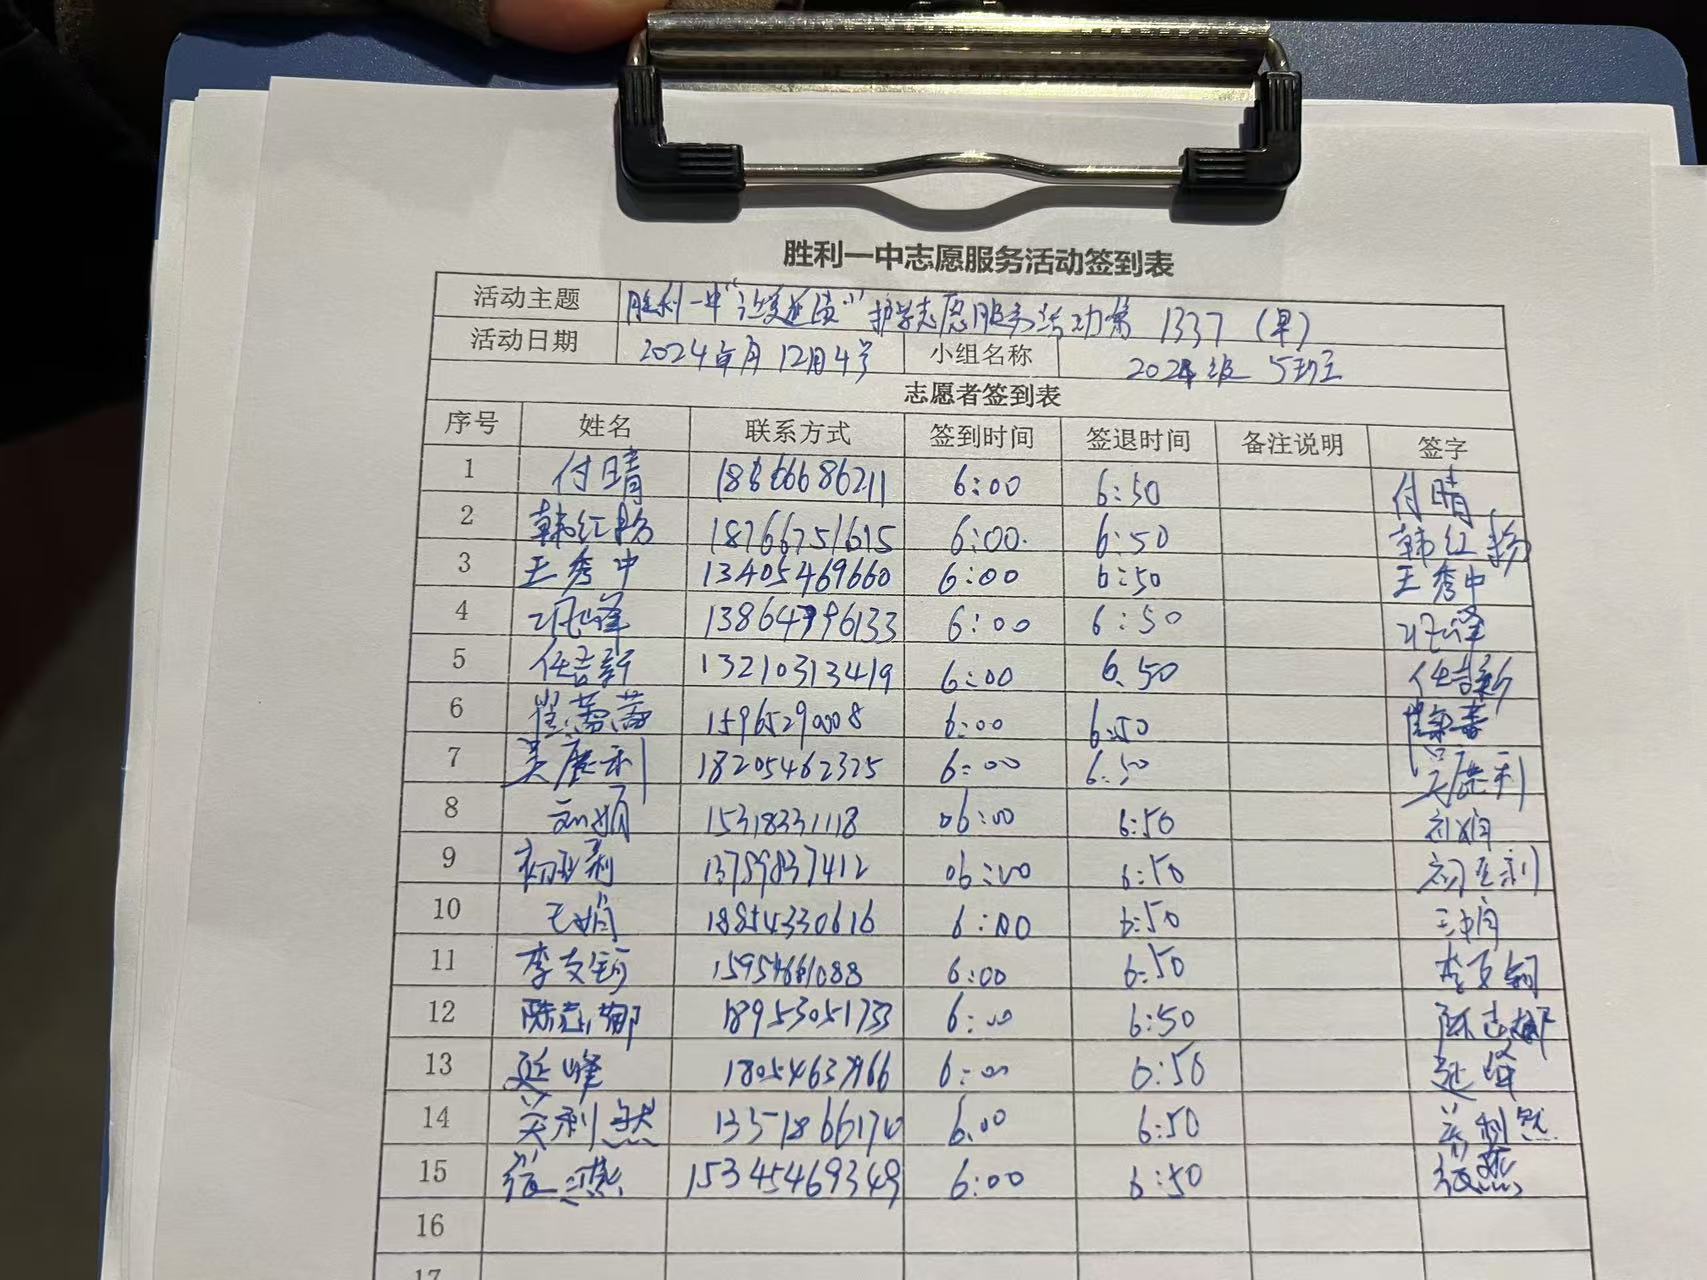 胜利一中志愿服务活动签到表
活动主题 胜利一中"让爱延续"护学志愿服务活动第1337(早)
活动日期 2024年月12月4号 小组名称 2024级5班
志愿者签到表
序号 姓名 联系方式 签到时间 签退时间 备注说明 签字
1 付晴 18666686211 6:00 6:50 付晴
2 韩红 18766751615 6:00 6:50 韩红
3 王秀中 13405469660 6:00 6:50 王秀中
4 6:00 6:50
5 任吉新 13210313419 6:00 6.50 任吉新
6 崔蕾蕾 6:00 6:50
7 吴康利 18205462325 6:00 6:50 吴康利
8 刘娟 15318331118 06:00 6:50 刘娟
9 初亚利 13759837412 06:00 6:50 初亚利
10 王娟 18854330616 6:00 6:50 王娟
11 李文钶 15954661088 6:00 6:50 李文钶
12 陈志娜 18953051733 6:00 6:50 陈志娜
13 延峰 6:00 6:50 延峰
14 关利然 6:00 6:50 关利然
15 张燕 15345469349 6:00 6:50 张燕
16
17